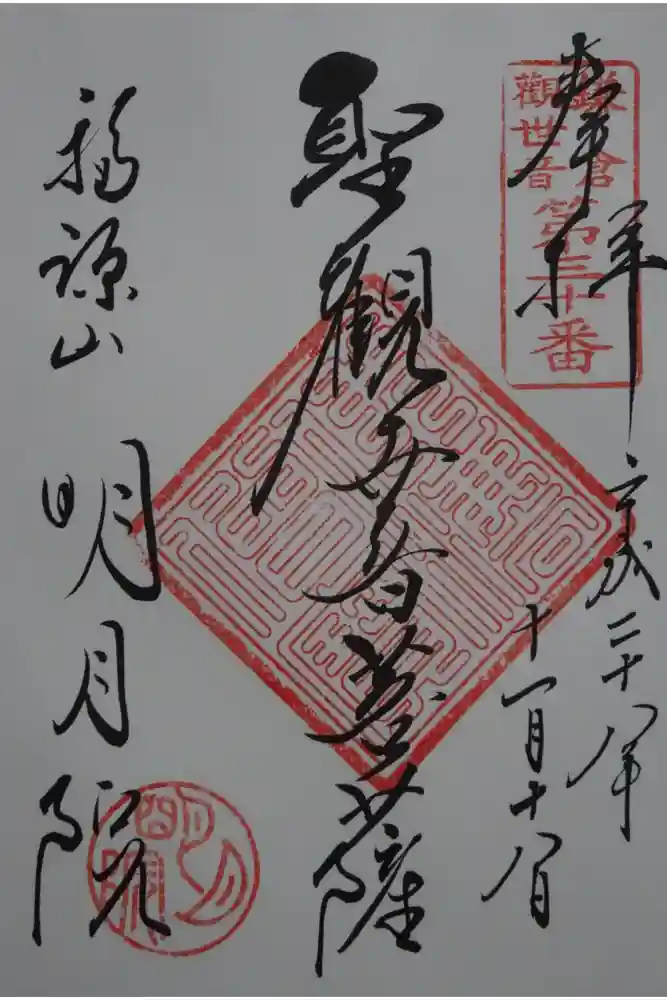 奉拝
鎌倉
観世音
第三十番
平成二十八年
十一月十八日
聖観世音菩薩
福源山
明月院